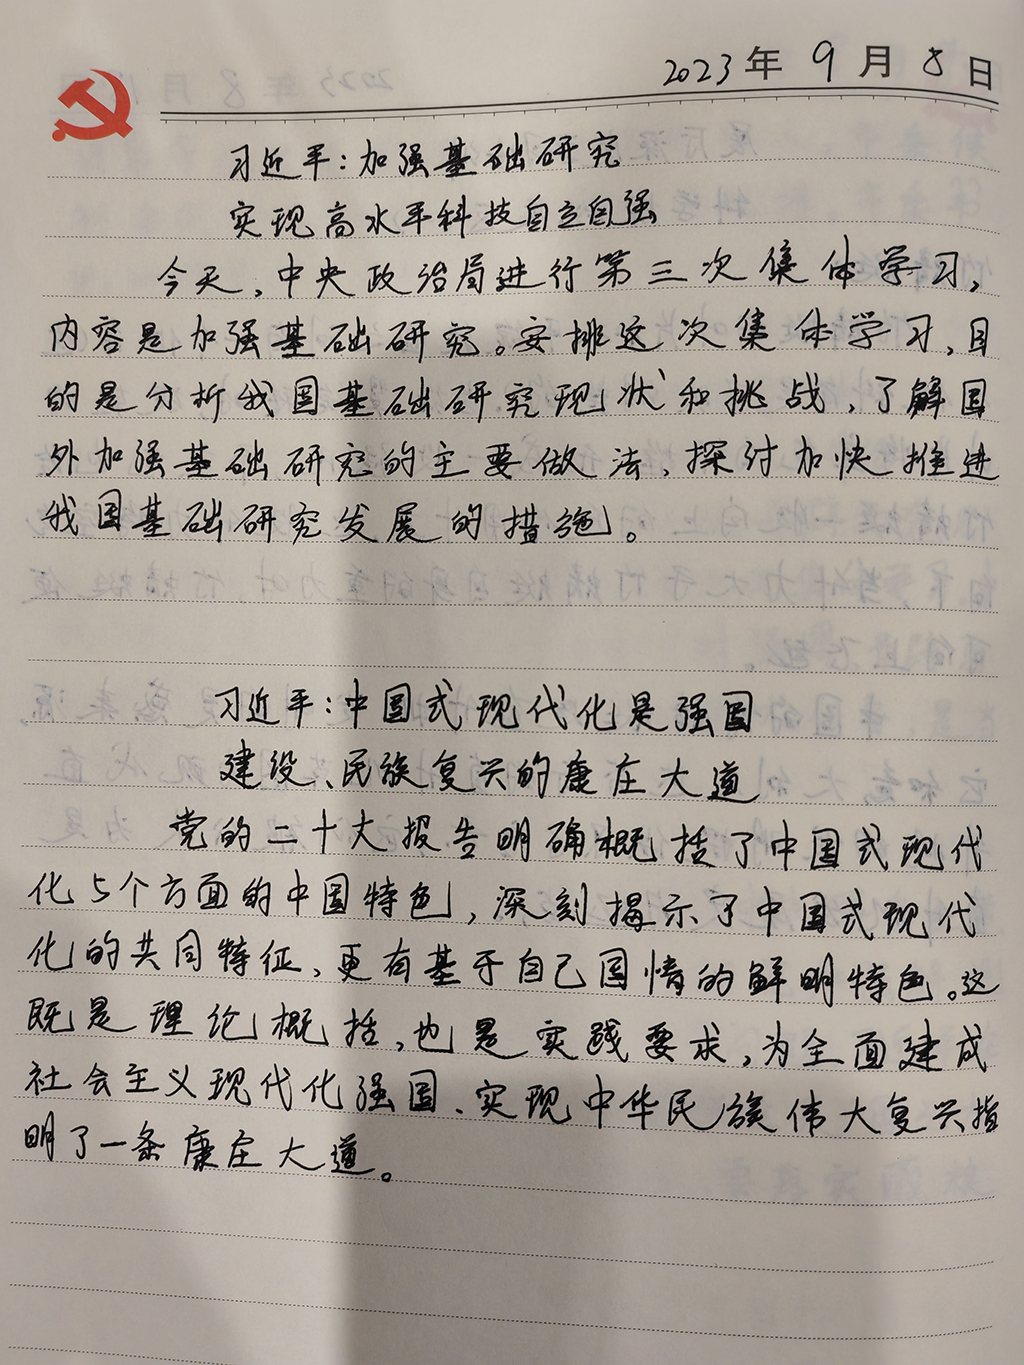 2023年9月8日
习近平：加强基础研究
实现高水平科技自立自强
今天，中央政治局进行第三次集体学习，
内容是加强基础研究。安排这次集体学习，目
的是分析我国基础研究现状和挑战，了解国
外加强基础研究的主要做法，探讨加快推进
我国基础研究发展的措施。
习近平：中国式现代化是强国
建设、民族复兴的康庄大道
党的二十大报告明确概括了中国式现代
化5个方面的中国特色，深刻揭示了中国式现代
化的共同特征，更有基于自己国情的鲜明特色。这
既是理论概括，也是实践要求，为全面建成
社会主义现代化强国、实现中华民族伟大复兴指
明了一条康庄大道。